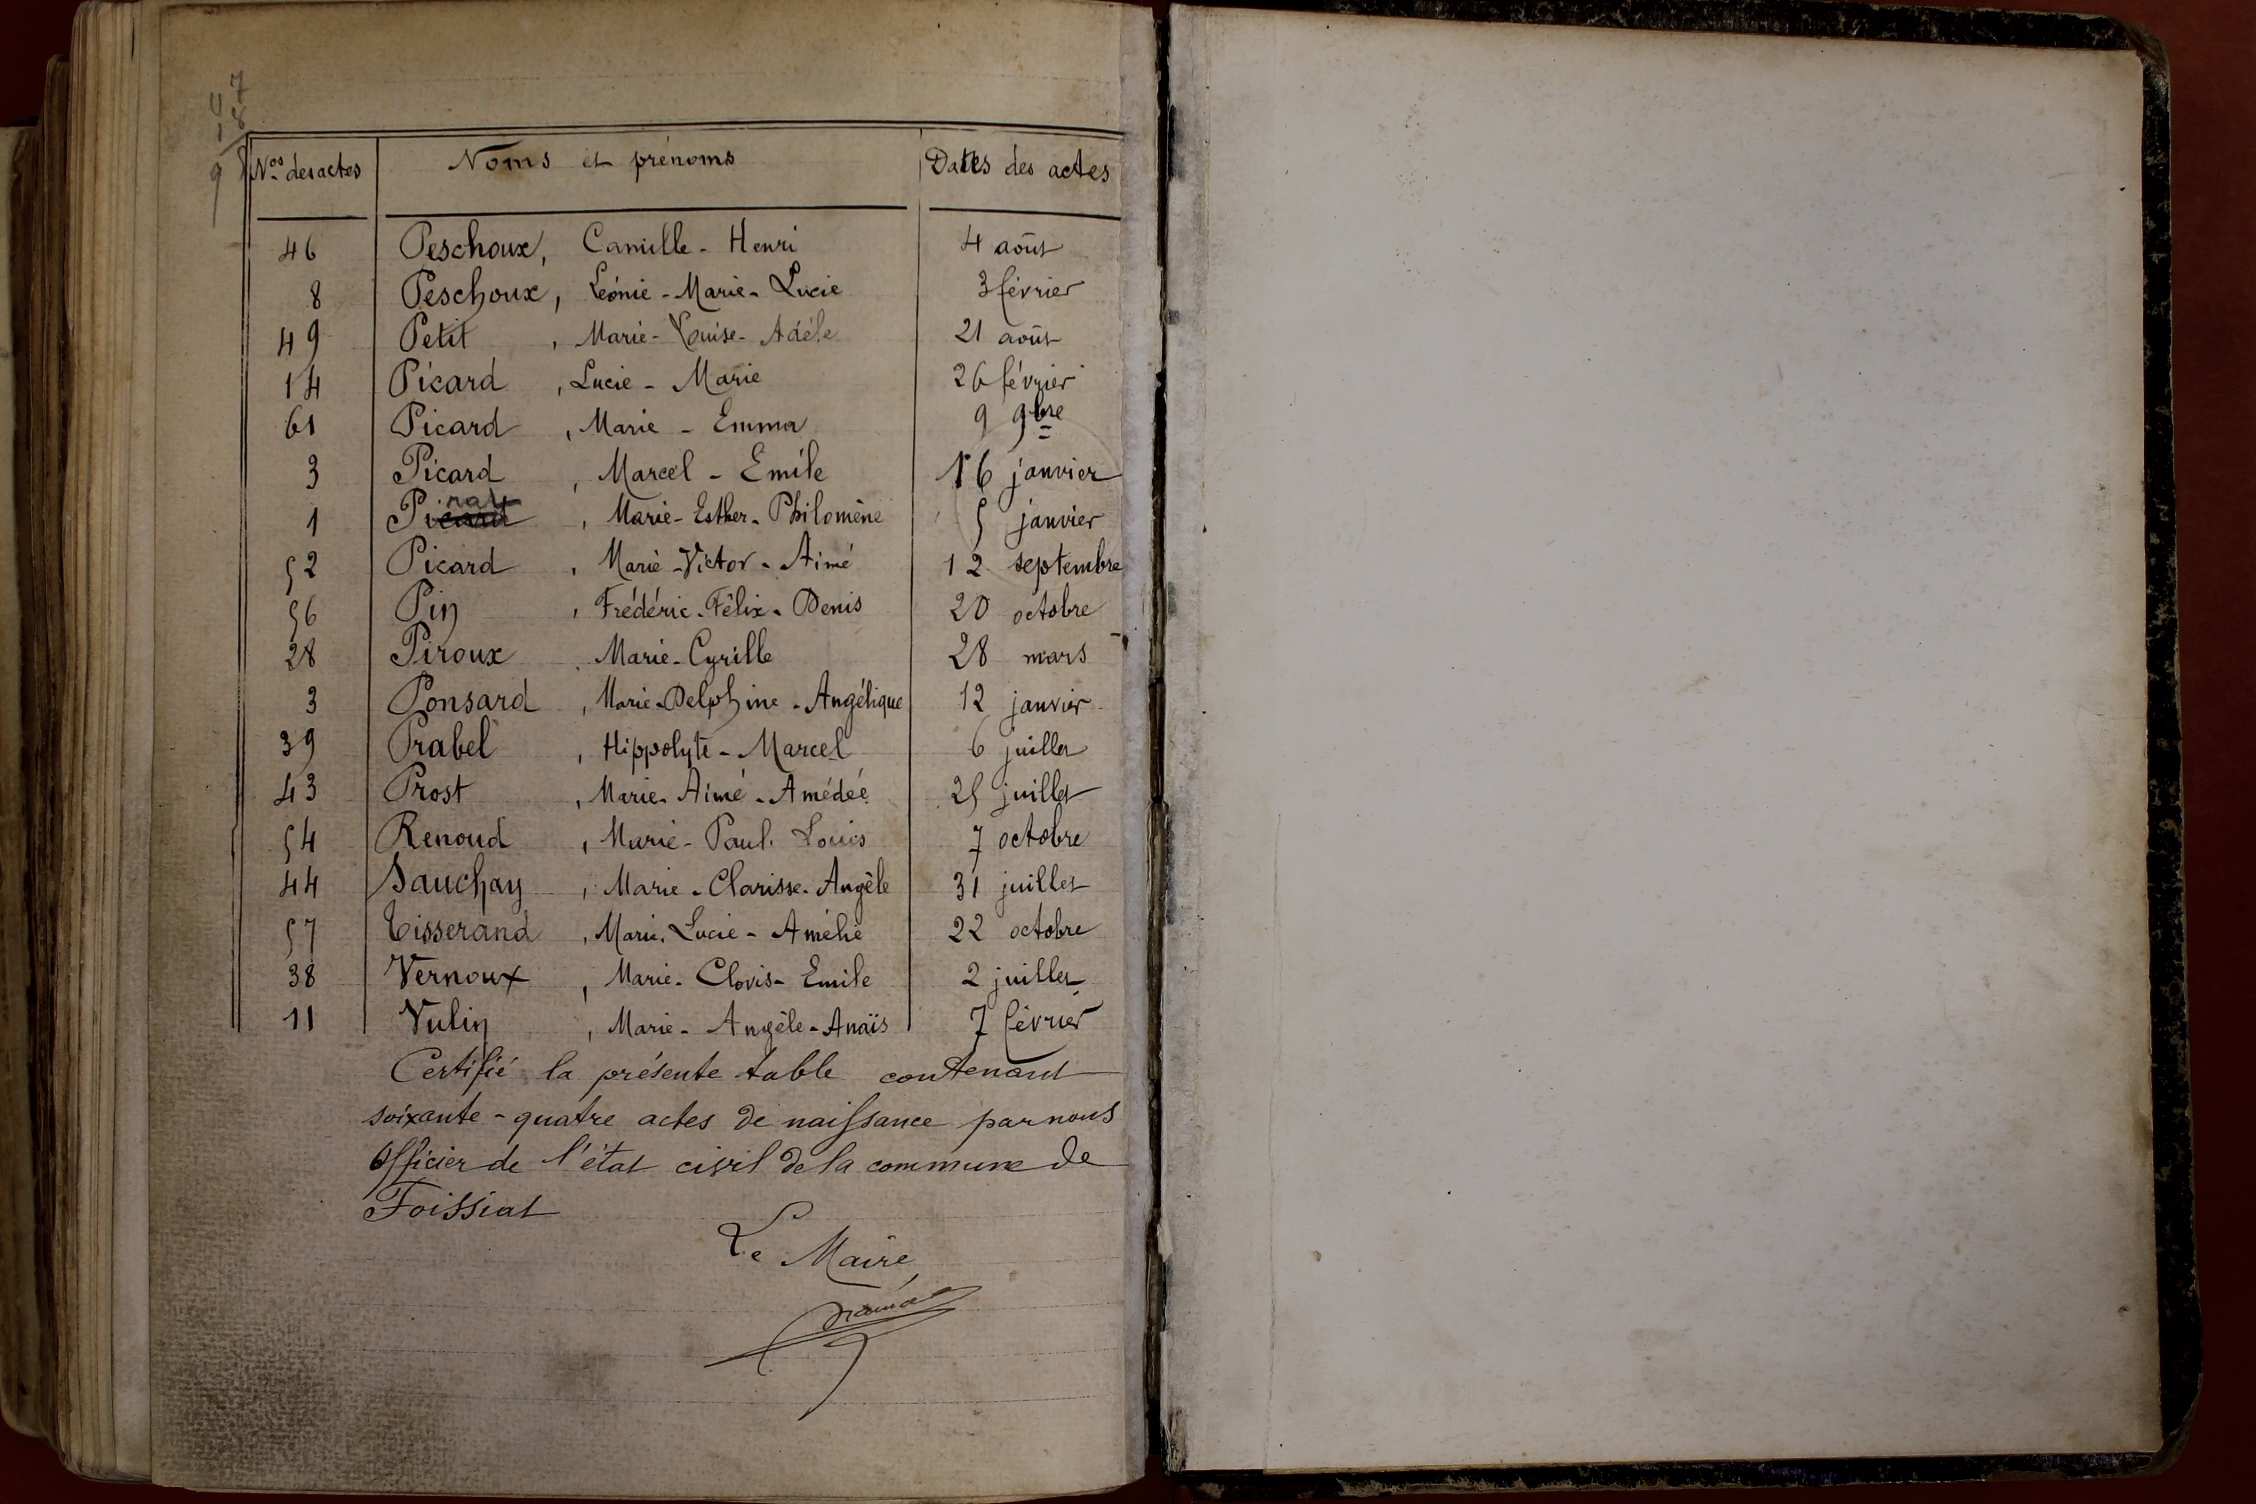 47
18
9
Nos des actes Noms et prénoms Dates des actes
46 Peschoux, Camille - Henri 4 août
8 Peschoux, Léonie - Marie - Lucie 3 février
49 Petit, Marie - Louise - Adèle 21 août
14 Picard, Lucie - Marie 26 février
61 Picard, Marie - Emma 9 9bre
3 Picard, Marcel - Emile 16 janvier
1 , Marie - Esther - Philomène 5 janvier
52 Picard, Marie - Victor - Aimé 12 septembre
56 Pin, Frédéric - Félix - Denis 20 octobre
28 Piroux, Marie - Cyrille 28 mars
3 Ponsard, Marie - Delphine - Angélique 12 janvier
39 Prabel, Hippolyte - Marcel 6 juillet
43 Prost, Marie - Aimé - Amédée 25 juillet
54 Renoud, Marie - Paul - Louis 7 octobre
44 Sauchay, Marie - Clarisse - Angèle 31 juillet
57 Tisserand, Marie - Lucie - Amélie 22 octobre
38 Vernoux, Marie - Clovis - Emile 2 juillet
11 Vulin, Marie - Angèle - Anaïs 7 février
Certifié la présente table contenant
soixante - quatre actes de naissance par nous
Officier de l'état civil de la commune de
Foissiat
Le Maire,